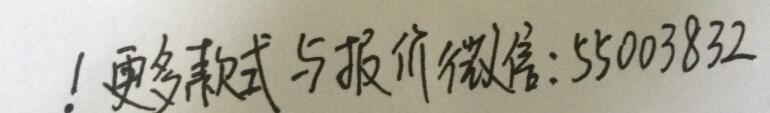 ！更多款式与报价微信：55003832